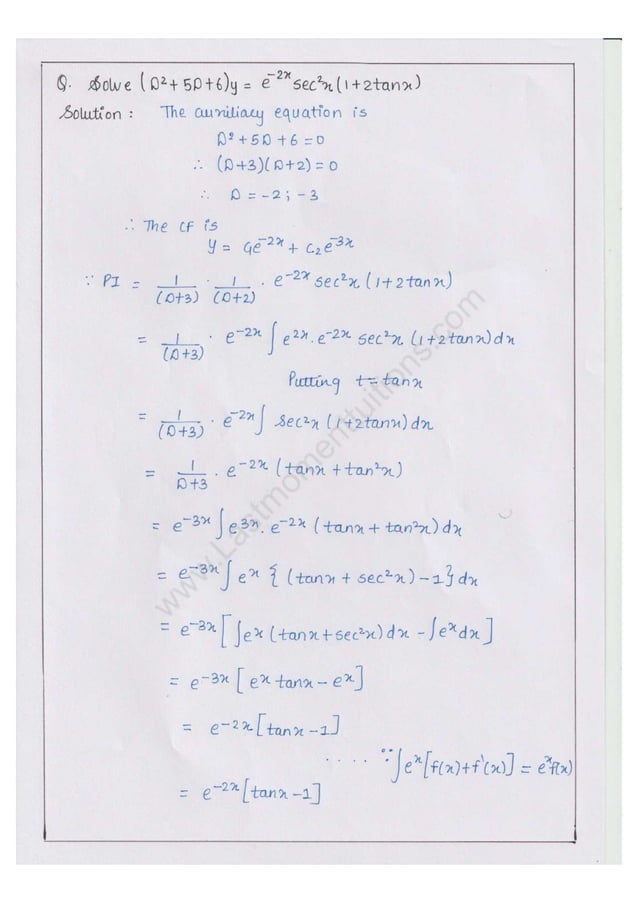 Q. Solve (D²+5D+6)y = e⁻²ˣ sec²x(1+2tanx)
Solution : The auxiliary equation is
D²+5D+6=0
∴ (D+3)(D+2)=0
∴ D = -2 ; -3
∴ The CF is
y = C₁e⁻²ˣ + C₂e⁻³ˣ
∵ PI = 1/(D+3) · 1/(D+2) · e⁻²ˣ sec²x (1+2tanx)
= 1/(D+3) · e⁻²ˣ ∫ e²ˣ · e⁻²ˣ sec²x (1+2tanx)dx
Putting t = tanx
= 1/(D+3) · e⁻²ˣ ∫ sec²x (1+2tanx)dx
= 1/D+3 · e⁻²ˣ (tanx + tan²x)
= e⁻³ˣ ∫ e³ˣ · e⁻²ˣ (tanx + tan²x)dx
= e⁻³ˣ ∫ eˣ { (tanx + sec²x) - 1 } dx
= e⁻³ˣ [ ∫ eˣ (tanx + sec²x)dx - ∫ eˣdx ]
= e⁻³ˣ [ eˣ tanx - eˣ ]
= e⁻²ˣ [ tanx - 1 ]
. . . . ∵ ∫ eˣ [f(x)+f'(x)] = eˣf(x)
= e⁻²ˣ [tanx - 1]
www.Lastmomenttuitions.com